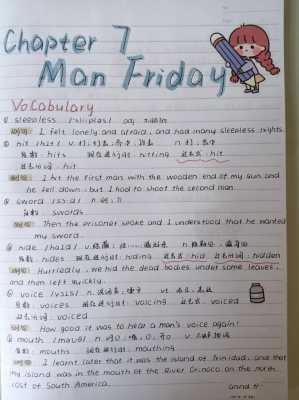 Chapter 7
Man Friday
Vocabulary
① sleepless /ˈsliːpləs/ adj. 不眠的
例句: I felt lonely and afraid, and had many sleepless nights.
② hit /hɪt/ v. 打, n. 打,击中
三单: hits 现在进行时: hitting 过去式: hit
过去分词: hit
例句: I hit the first man with the wooden end of my gun and
he fell down, but I had to shoot the second man.
③ sword /sɔːd/ n. 剑,刀
复数: swords
例句: Then the prisoner woke and I understood that he wanted
my sword.
④ hide /haɪd/ v. n.
三单: hides 现在进行时: hiding 过去式: hid 过去分词: hidden
例句: Hurriedly, we hid the dead bodies under some leaves,
and then left quickly.
⑤ voice /vɔɪs/ n. vt.
三单: voices 现在进行时: voicing 过去式: voiced
过去分词: voiced
例句: How good it was to hear a man's voice again!
⑥ mouth /maʊθ/ n. v.
三单: mouths 现在进行时: mouthing
例句: I learnt later that it was the island of Trinidad, and that
my island was in the mouth of the River Orinoco on the north
cost of South America.